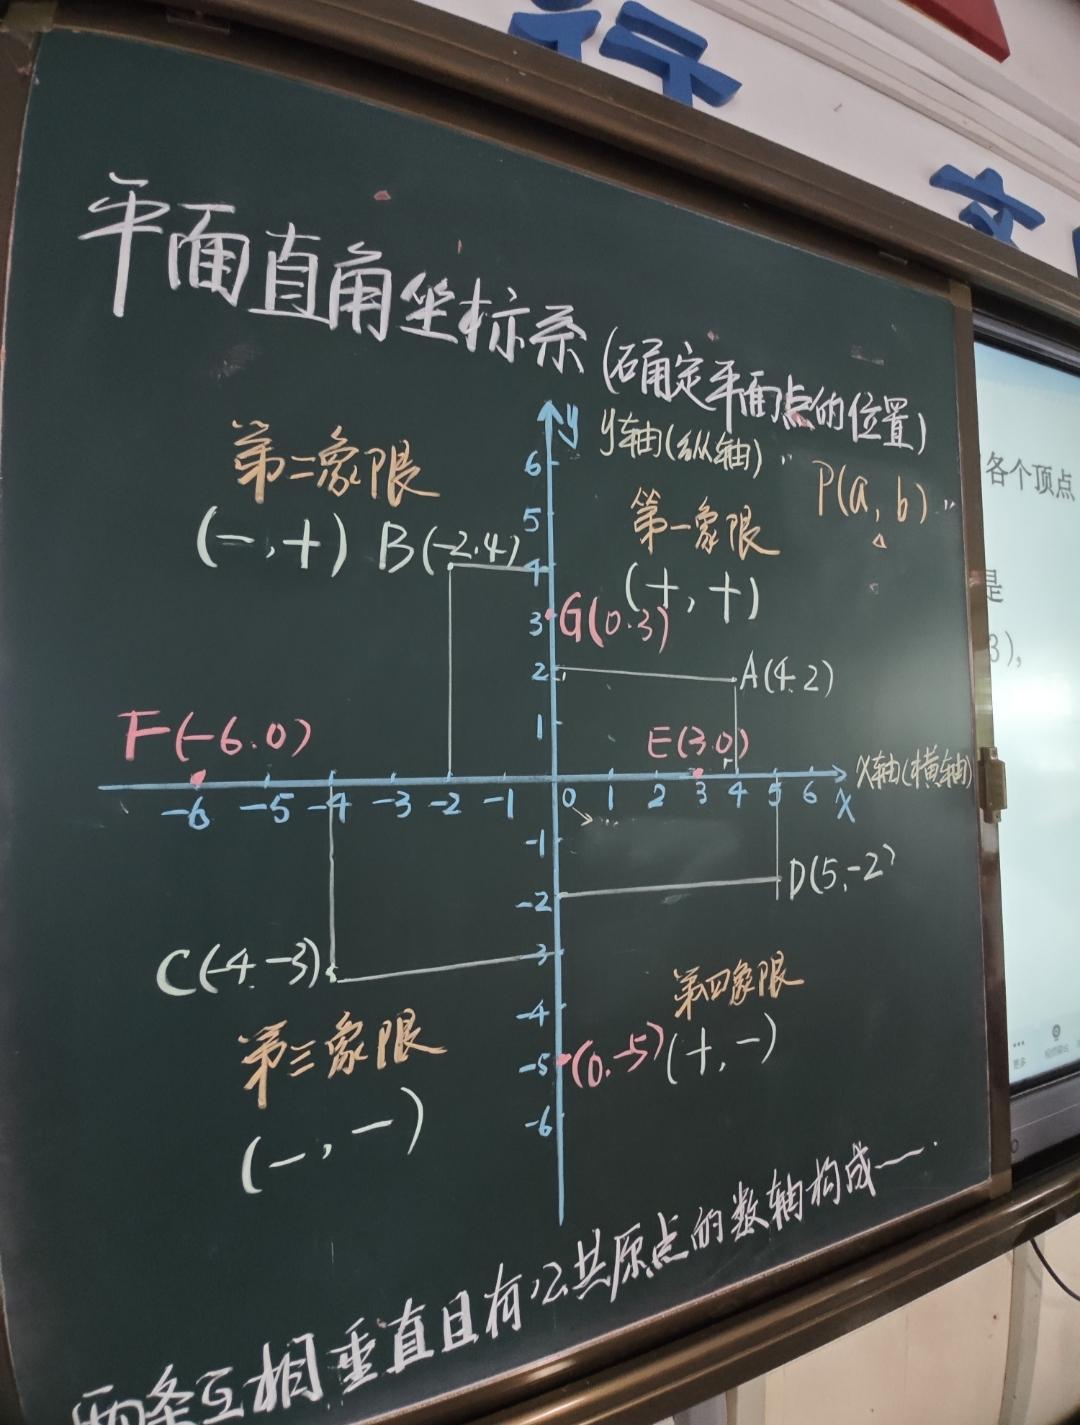 行
文
平面直角坐标系(确定平面点的位置)
y
y轴(纵轴)
P(a, b)
第二象限
(-,+)
B(-2,4)
第一象限
(+,+)
6
5
4
3
2
1
G(0,3)
A(4,2)
F(-6,0)
E(3,0)
x轴(横轴)
-6 -5 -4 -3 -2 -1 0 1 2 3 4 5 6 X
-1
-2
-3
-4
-5
-6
D(5,-2)
C(-4,-3)
第四象限
(0,-5)
(+,-)
第三象限
(-,-)
两条互相垂直且有公共原点的数轴构成一
各个顶点
是
3),
更多